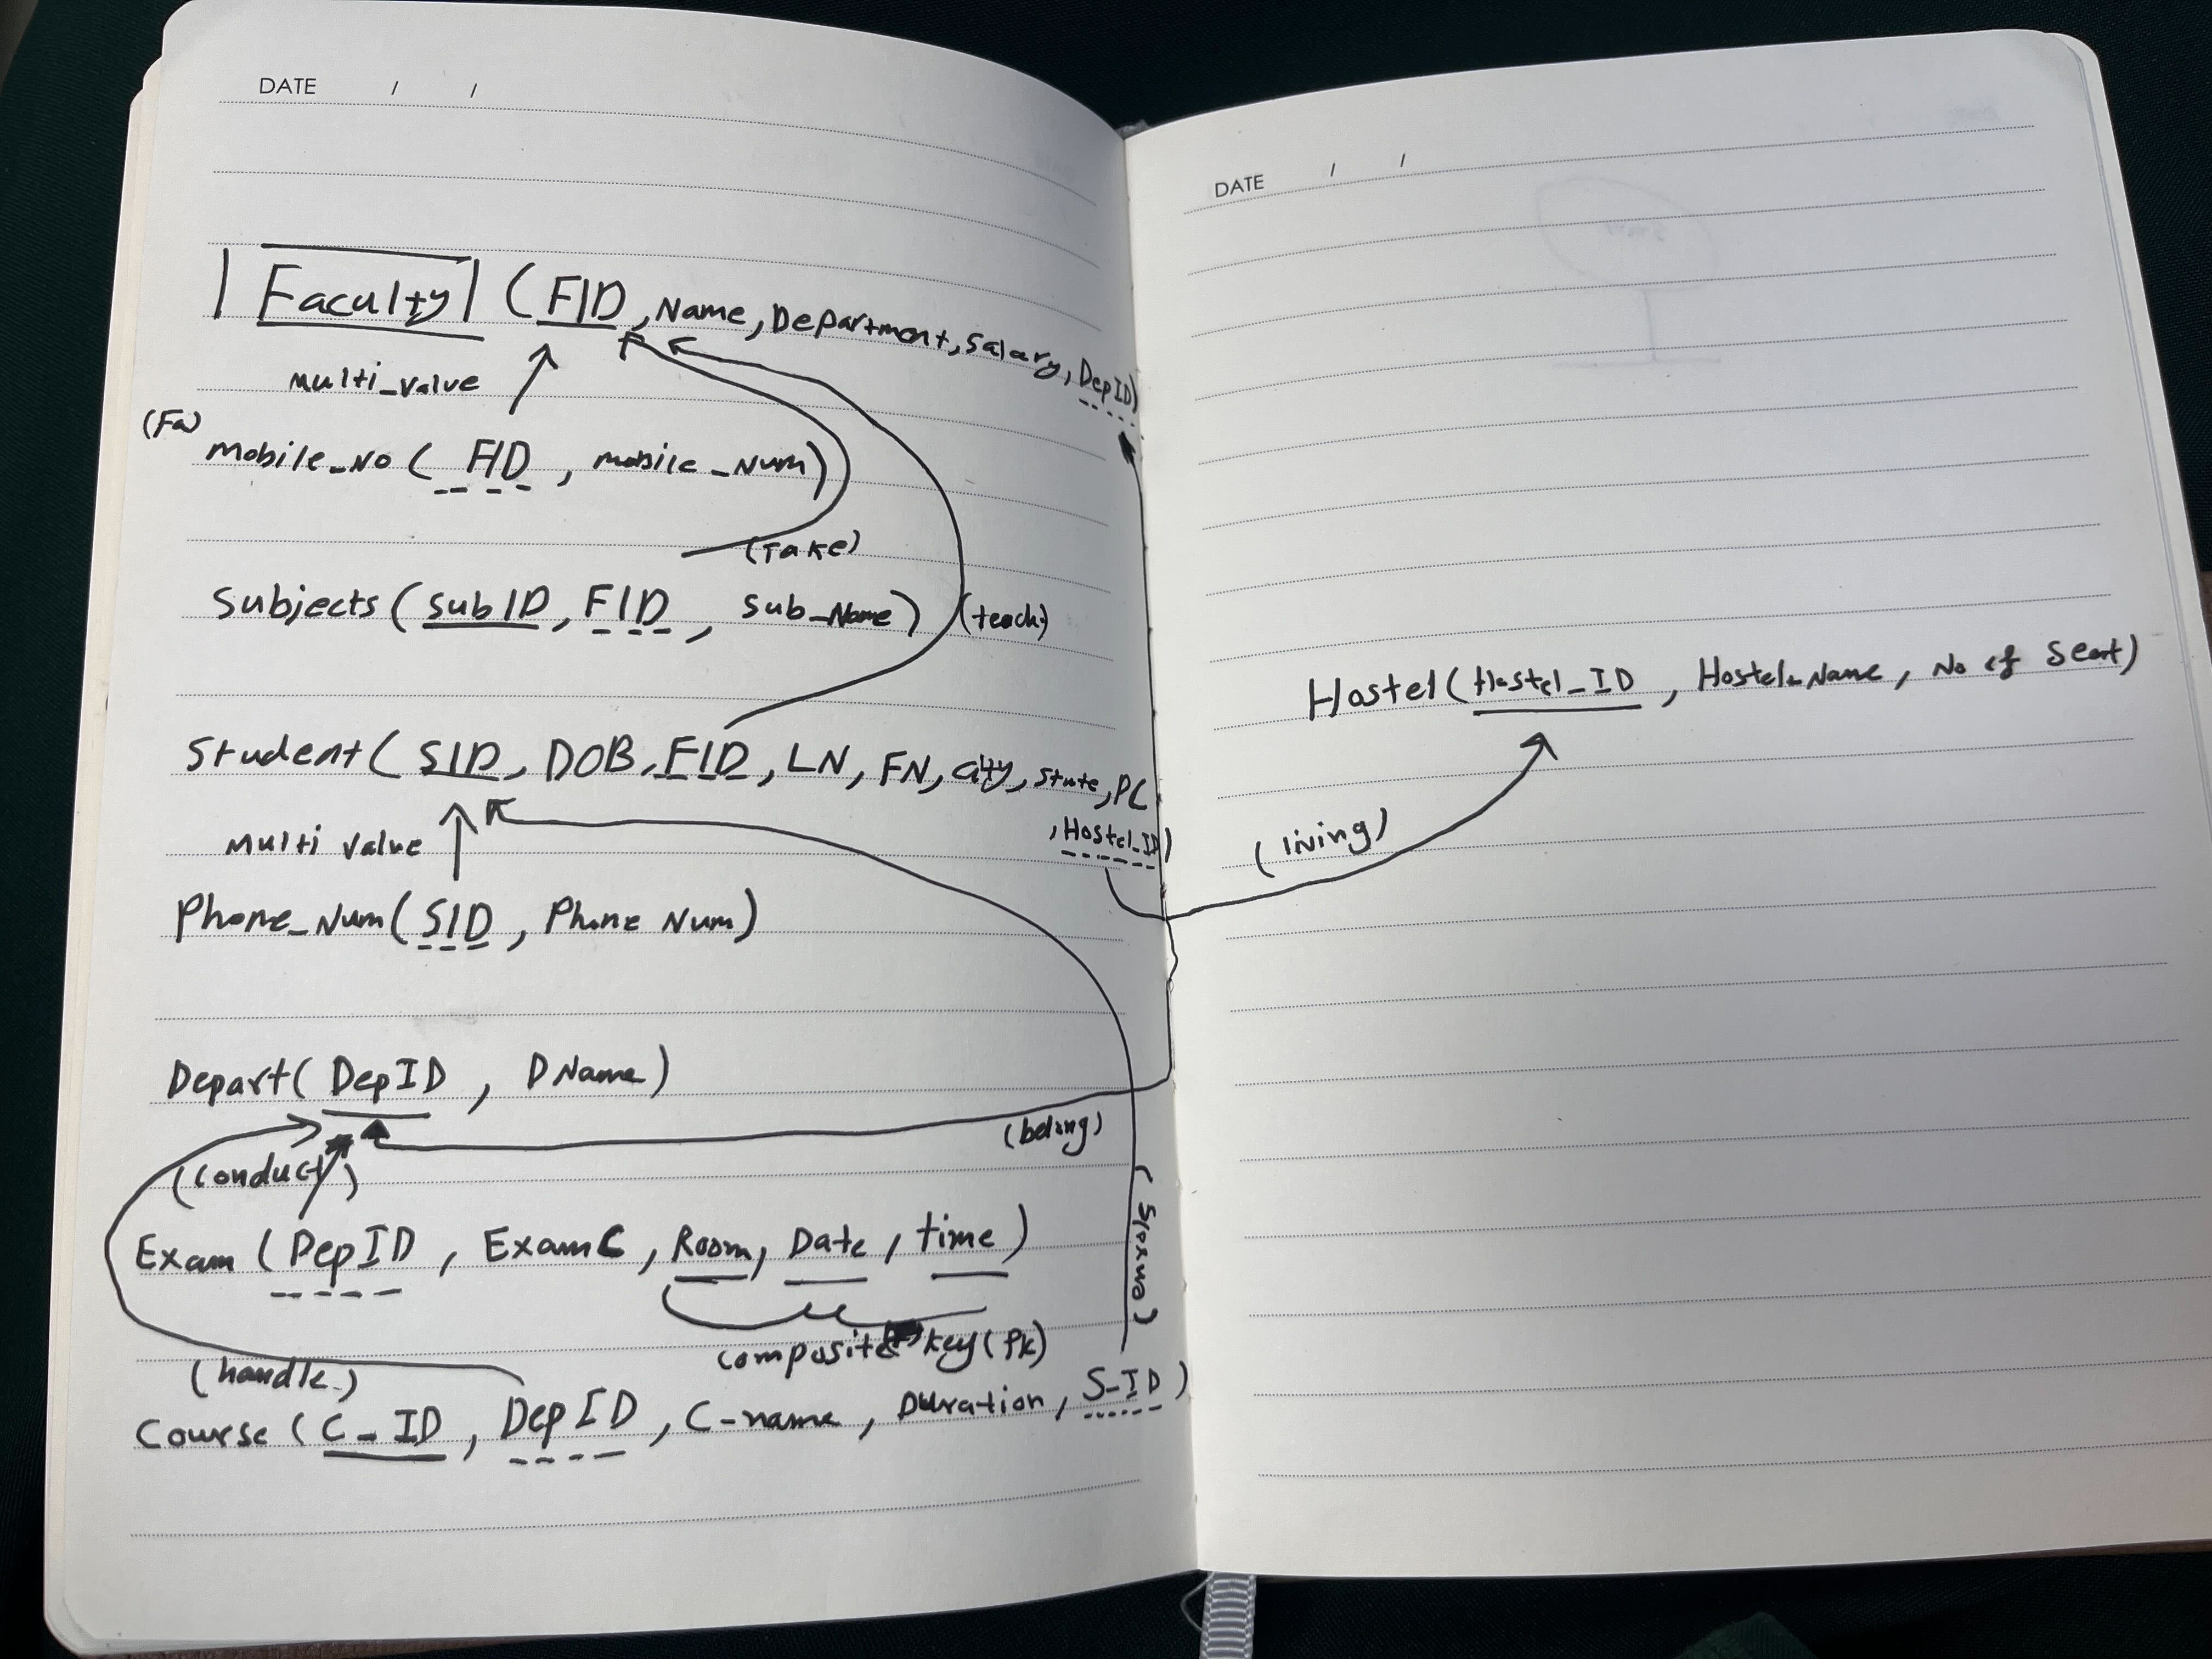 DATE / /
Faculty (FID, Name, Department, Salary, DepID)
Multi_value
(Fa)
mobile_No (FID, mobile_Num)
(Take)
Subjects (subID, FID, sub_Name) (teach)
Student (SID, DOB, FID, LN, FN, city, state, PC
, Hostel_ID)
Multi value
Phone_Num (SID, Phone Num)
Depart (DepID, DName)
(belong)
(conduct)
Exam (DepID, ExamC, Room, Date, time)
composite key (Pk)
(handle)
Course (C_ID, DepID, C-name, Duration, S-ID)
DATE / /
Hostel (Hostel_ID, Hostel_Name, No of Seat)
(living)